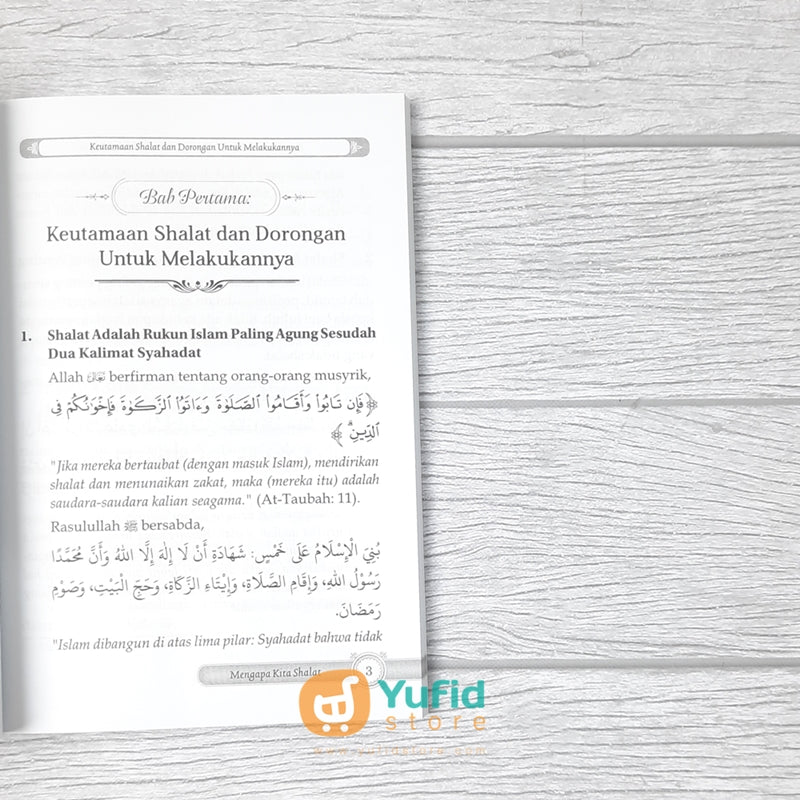 Keutamaan Shalat dan Dorongan Untuk Melakukannya
Bab Pertama:
Keutamaan Shalat dan Dorongan
Untuk Melakukannya
1. Shalat Adalah Rukun Islam Paling Agung Sesudah
Dua Kalimat Syahadat
Allah تعالى berfirman tentang orang-orang musyrik,
﴿فَإِن تَابُوا۟ وَأَقَامُوا۟ ٱلصَّلَوٰةَ وَءَاتَوُا۟ ٱلزَّكَوٰةَ فَإِخْوَٰنُكُمْ فِى
ٱلدِّينِ ۗ﴾
"Jika mereka bertaubat (dengan masuk Islam), mendirikan
shalat dan menunaikan zakat, maka (mereka itu) adalah
saudara-saudara kalian seagama." (At-Taubah: 11).
Rasulullah ﷺ bersabda,
بُنِيَ الْإِسْلَامُ عَلَى خَمْسٍ: شَهَادَةِ أَنْ لَا إِلٰهَ إِلَّا اللهُ وَأَنَّ مُحَمَّدًا
رَسُوْلُ اللهِ، وَإِقَامِ الصَّلَاةِ، وَإِيْتَاءِ الزَّكَاةِ، وَحَجِّ الْبَيْتِ، وَصَوْمِ
رَمَضَانَ.
"Islam dibangun di atas lima pilar: Syahadat bahwa tidak
Mengapa Kita Shalat
3
Yufid
store
www.yufidstore.com